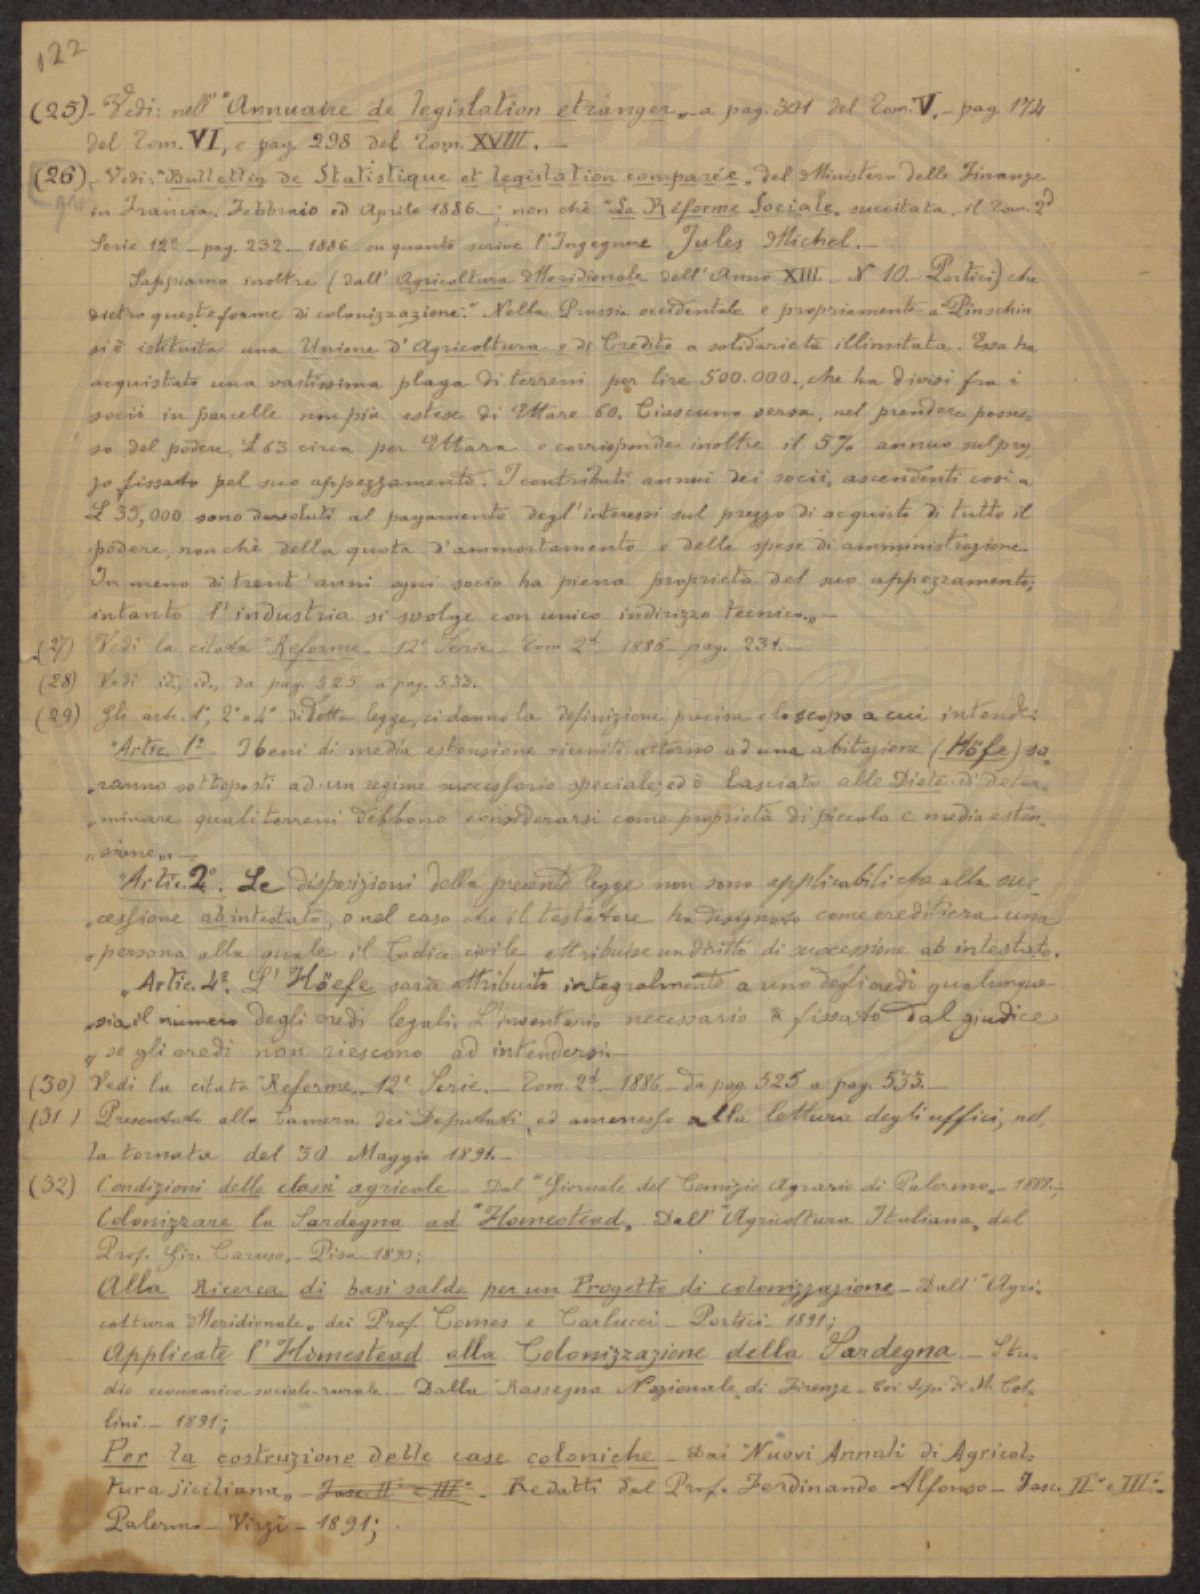 122
(25) - Vedi: nell' "Annuaire de legislation etranger„ - a pag. 301 del Tom. V. - pag. 174
del Tom. VI, e pag. 298 del Tom. XVIII. -
(26) - Vedi: "Bulletin de Statistique et legislation comparée„ del Ministero delle Finanze
in Francia. Febbraio ed Aprile 1886 -; non chè "La Réforme Sociale„ succitata, il Tom. 2d
Serie 12e - pag. 232 - 1886 - su quanto scrive l'Ingegnere Jules Michel. -
Sappiamo inoltre (dall' Agricoltura Meridionale dell' Anno XIII - N 10 - Portici) che
dietro queste forme di colonizzazione: "Nella Prussia occidentale e propriamente a Pinschin
si è istituita una Unione d'Agricoltura e di Credito a solidarietà illimitata. Essa ha
acquistato una vastissima plaga di terreni per lire 500.000., che ha divisi fra i
socii in parcelle non più estese di Ettare 60. Ciascuno versa, nel prendere posses-
so del podere, L 63 circa per Ettara e corrisponde inoltre il 5% annuo sul prez
zo fissato pel suo appezzamento. I contributi annui dei socii, ascendenti così a
L 35,000 sono devoluti al pagamento degl'interessi sul prezzo di acquisto di tutto il
podere, non chè della quota d'ammortamento e delle spese di amministrazione.
In meno di trent'anni ogni socio ha piena proprietà del suo appezzamento;
intanto l'industria si svolge con unico indirizzo tecnico„ -
(27) Vedi la citata "Reforme„ 12e Serie - Tom 2d 1886 - pag. 231. -
(28) Vedi id., id., da pag. 525 a pag. 533.
(29) Gli art. 1°, 2° e 4° di detta legge, ci danno la definizione precisa e lo scopo a cui intende:
"Artic. 1° - I beni di media estensione riuniti attorno ad una abitazione (Höfe) sa„
„ranno sottoposti ad un regime successorio speciale; ed è lasciato alle Diete di deter„
„minare quali terreni debbono considerarsi come proprietà di piccola e media esten„
„sione„. -
"Artic. 2°. Le disposizioni della presente legge non sono applicabili che alla suc-
„cessione ab intestato, o nel caso che il testatore ha designato come ereditiera una
„persona alla quale il Codice civile attribuisce un diritto di successione ab intestato.
„Artic. 4°. L' Höefe sarà attribuito integralmente a uno degli eredi qualunque
„sia il numero degli eredi legali. L'inventario necessario è fissato dal giudice
„se gli eredi non riescono ad intendersi. -
(30) Vedi la citata "Reforme„ 12e Serie. - Tom. 2d - 1886 - da pag. 525 a pag. 533. -
(31) Presentato alla Camera dei Deputati, ed ammesso alla lettura degli uffici, nel„
la tornata del 30 Maggio 1891. -
(32) Condizioni delle classi agricole - Dal "Giornale del Comizio Agrario di Palermo„ - 1888. -;
Colonizzare la Sardegna ad "Homestead„ Dall' "Agricoltura Italiana„ del
Prof. Gir. Caruso. - Pisa - 1890;
Alla Ricerca di basi salde per un Progetto di colonizzazione - Dall' "Agri-
coltura Meridionale„ dei Prof. Comes e Carlucci - Portici - 1891;
Applicate l'Homestead alla Colonizzazione della Sardegna - Stu-
dio economico-sociale-rurale - Dalla "Rassegna Nazionale„ di Firenze - Coi tipi di M. Cel-
lini - 1891;
Per la costruzione delle case coloniche - Dai "Nuovi Annali di Agricol-
tura Siciliana„ - Fasc. II° e III° - Redatti dal Prof. Ferdinando Alfonso - Fasc. II° e III° -
Palermo - Virzi - 1891;